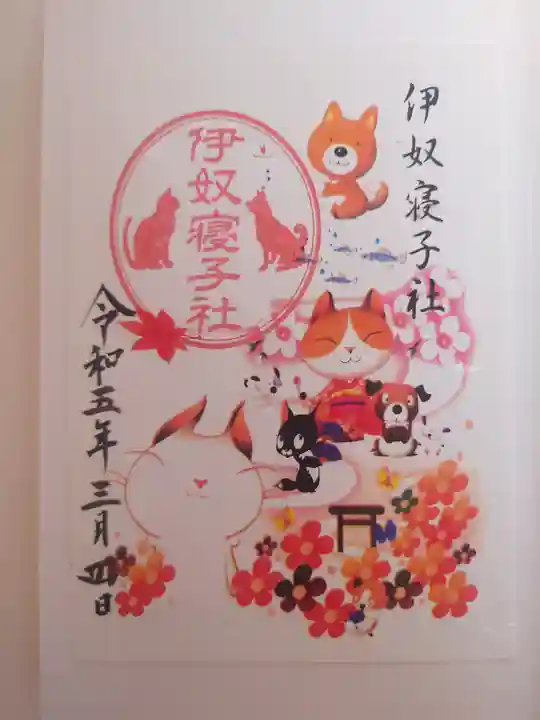 伊奴寝子社
伊奴寝子社
令和五年三月四日